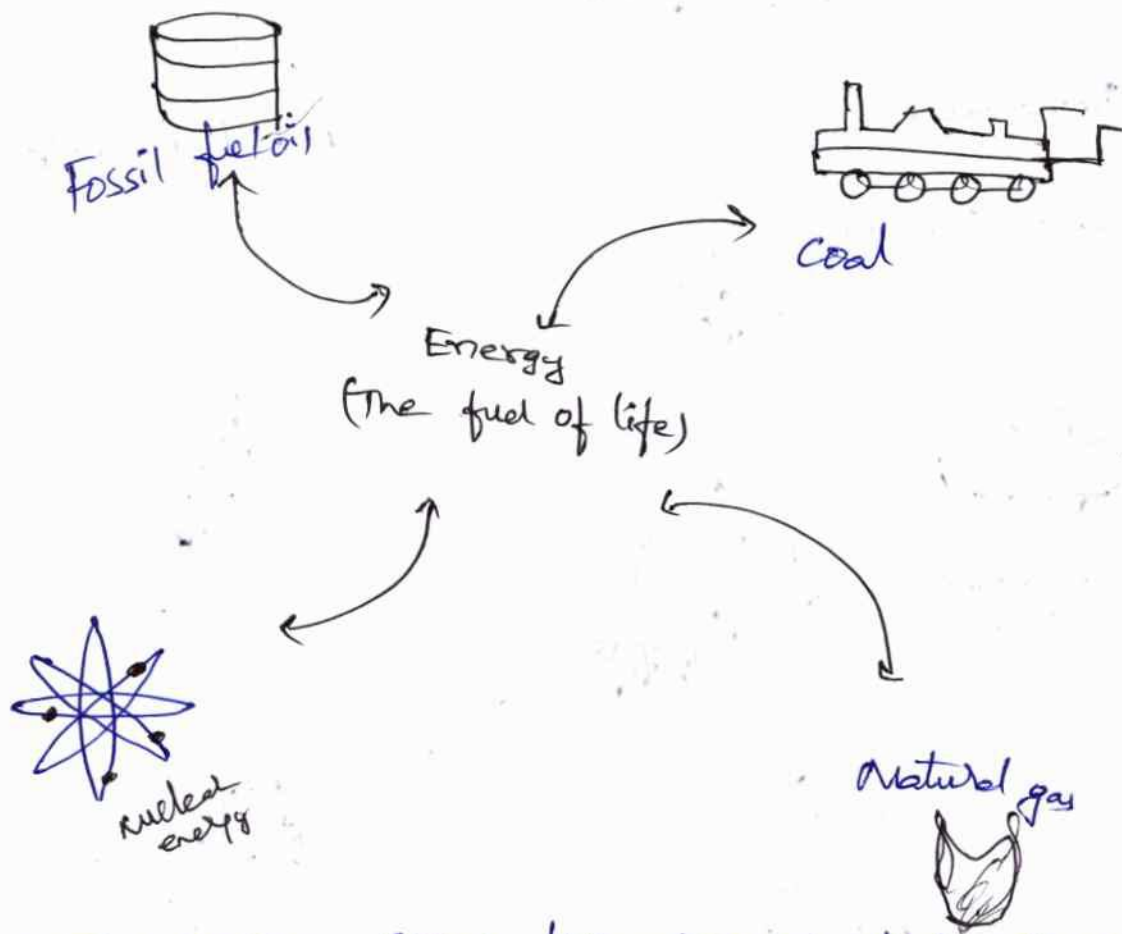 Fossil fuel oil
Coal
Energy
(The fuel of life)
nuclear
energy
Natural gas